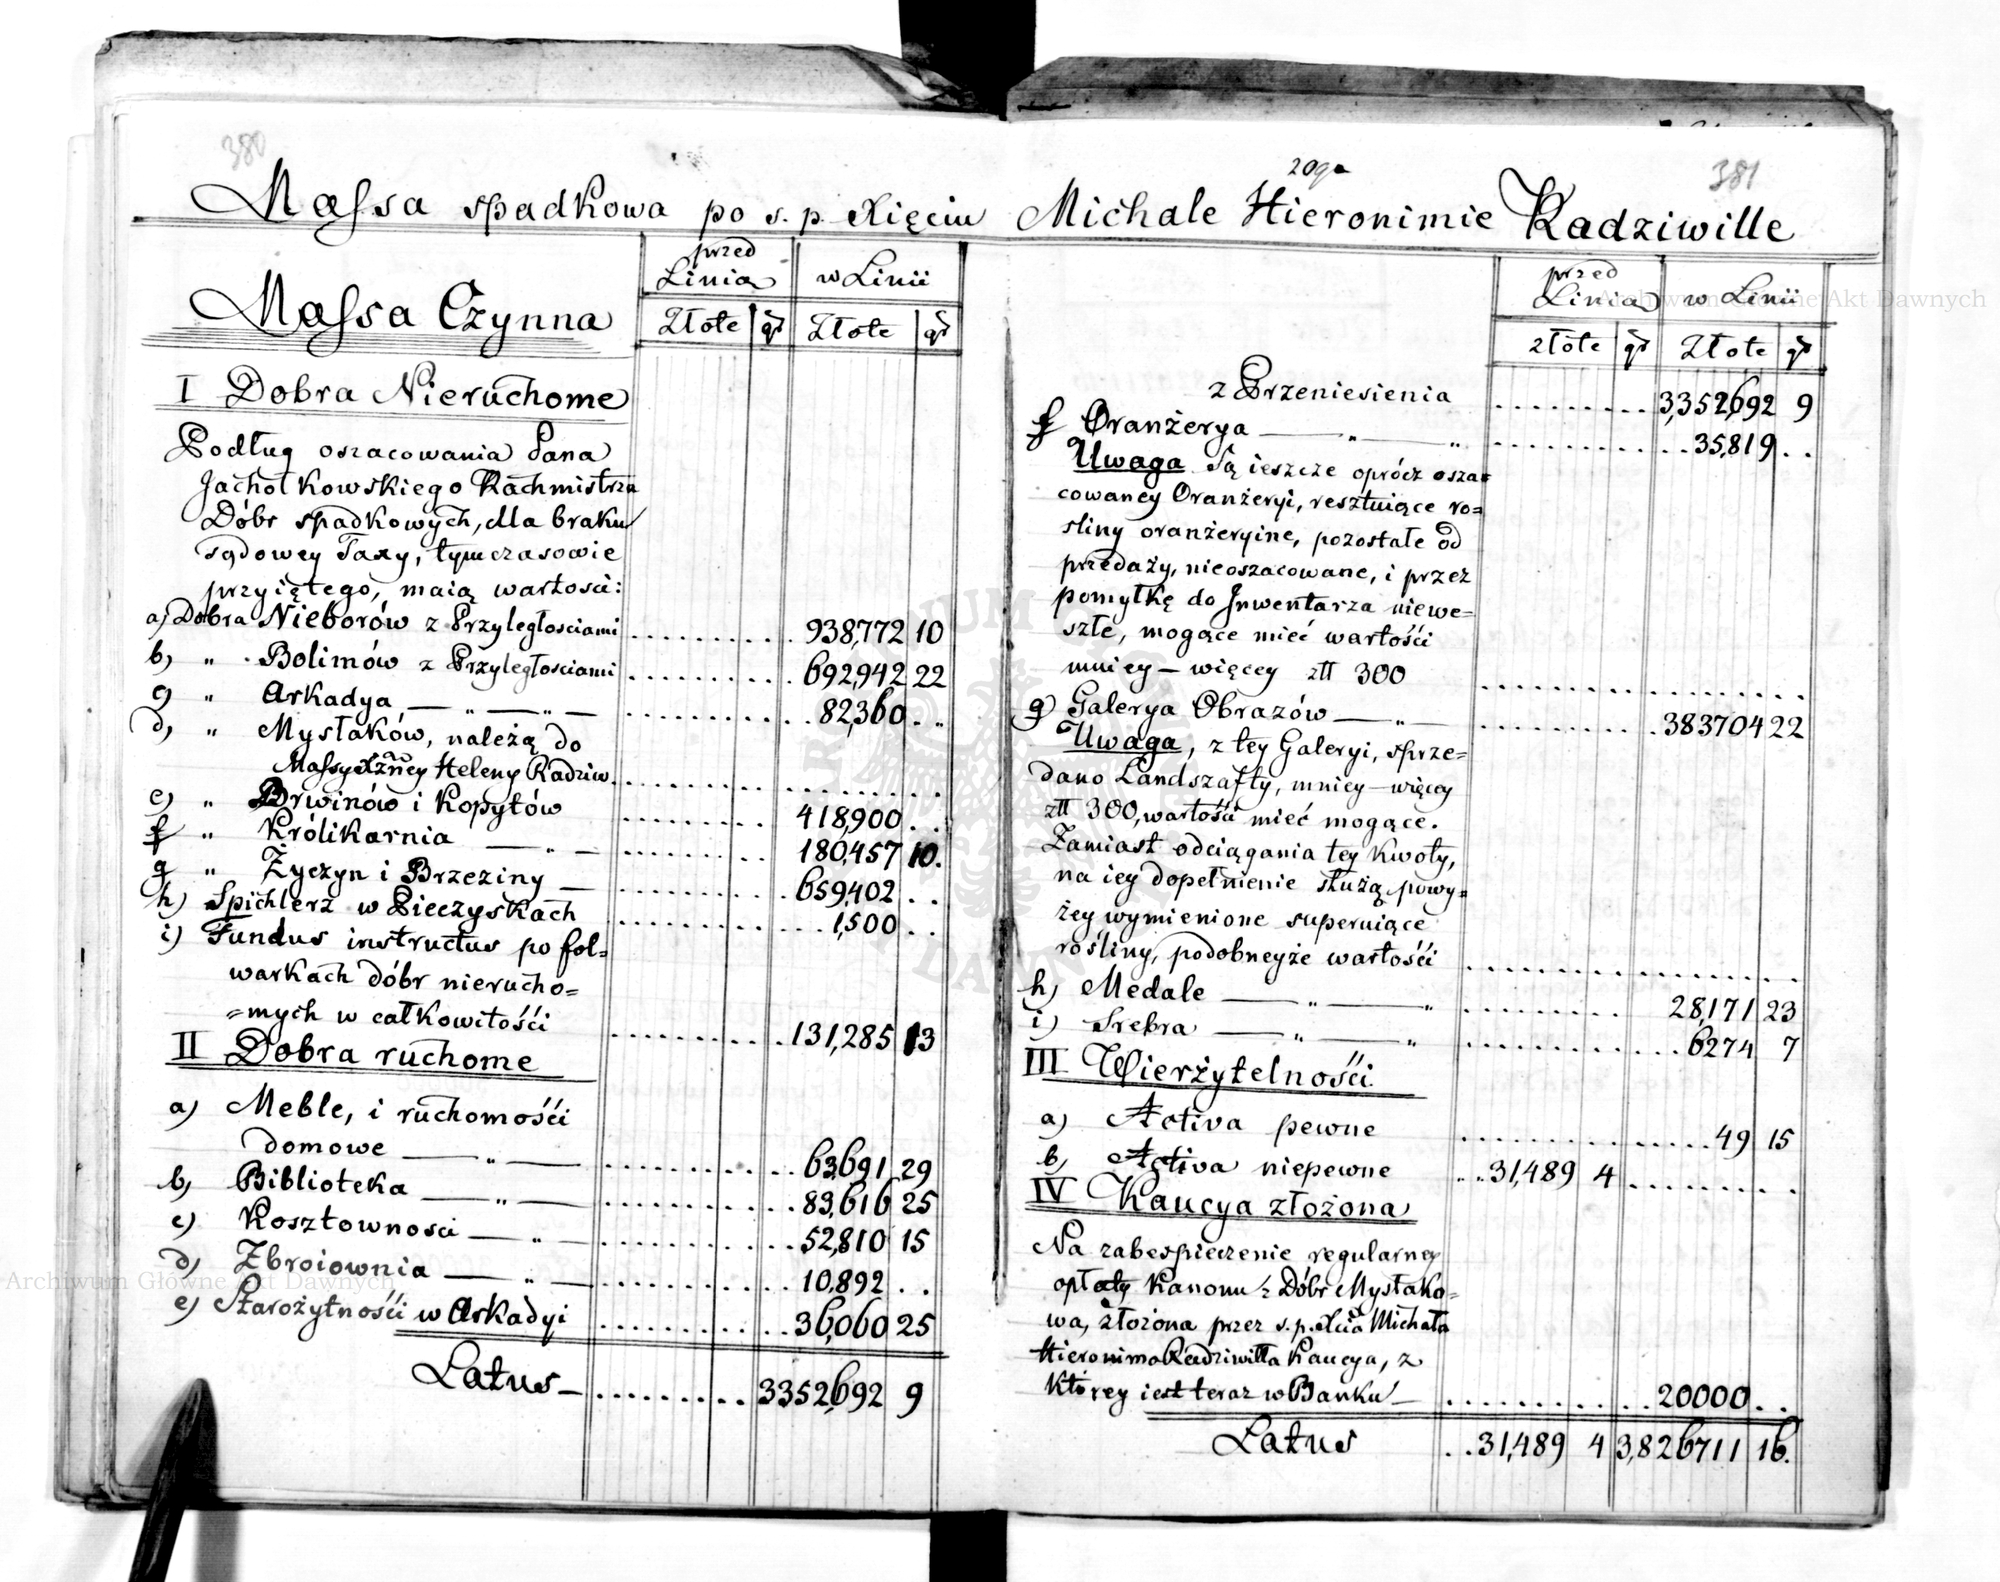 380
20ga
381
Massa spadkowa po s. p. Xięciu Michale Hieronimie Radziwille
przed Linią w Linii
Massa Czynna
Złote gr Złote gr
I Dobra Nieruchome
Podług oszacowania Pana
Jachołkowskiego Rachmistrza
Dóbr spadkowych, dla braku
sądowey Taxy, tymczasowie
przyiętego, maią wartości:
a) Dobra Nieborów z Przyległosciami 938,772 10
b) " Bolimów z Przyległosciami 692,942 22
c) " Arkadya — " — " — 82,360 . "
d) " Mysłaków, należą do
Massy Xżney Heleny Radziw.
e) " Brwinów i Kopytów 418,900 . .
f " Królikarnia — " — 180,457 10.
g " Życzyn i Brzeziny — 659,402 . .
h) Spichlerz w Pieczyskach 1,500 . .
i) Fundus instructus po fol=
warkach dóbr nierucho=
=mych w całkowitości 131,285 13
II Dobra ruchome
a) Meble, i ruchomości
domowe — " — 63,691 29
b) Biblioteka — " — 83,616 25
c) Kosztownosci — " — 52,810 15
d) Zbroiownia — " — 10,892 . .
e) Starożytności w Arkadyi 36,060 25
Latus — 3352,692 9
przed Linią w Linii
złote gr Złote gr
z Przeniesienia 3,352,692 9
f Oranżerya — " — " 35,819 . .
Uwaga Są ieszcze oprócz osza=
cowaney Oranżeryi, resztuiące ro=
sliny oranżeryine, pozostałe od
przedaży, nieoszacowane, i przez
pomyłkę do Inwentarza niewe=
szłe, mogące mieć wartości
mniey — więcey złł 300
g) Galerya Obrazów — " — 383704 22
Uwaga, z tey Galeryi, sprze=
dano Landszafty, mniey — więcey
złł 300, wartości mieć mogące.
Zamiast odciągania tey kwoty,
na iey dopełnienie służą powy=
żey wymienione superuiące
rośliny, podobneyże wartości
h) Medale — " — " 28,171 23
i) Srebra — " — " 6274 7
III Wierżytelności
a) Activa pewne 49 15
b) Activa niepewne 31,489 4
IV Kaucya złożona
Na zabespieczenie regularney
opłaty Kanonu z Dóbr Mysłako=
wa, złożona przez s. p. Xcia Michała
Hieronima Radziwiłła Kaucya, z
którey iest teraz w Banku — 20000 . .
Latus 31,489 4 3,826711 16.
Archiwum Główne Akt Dawnych
Archiwum Główne Akt Dawnych